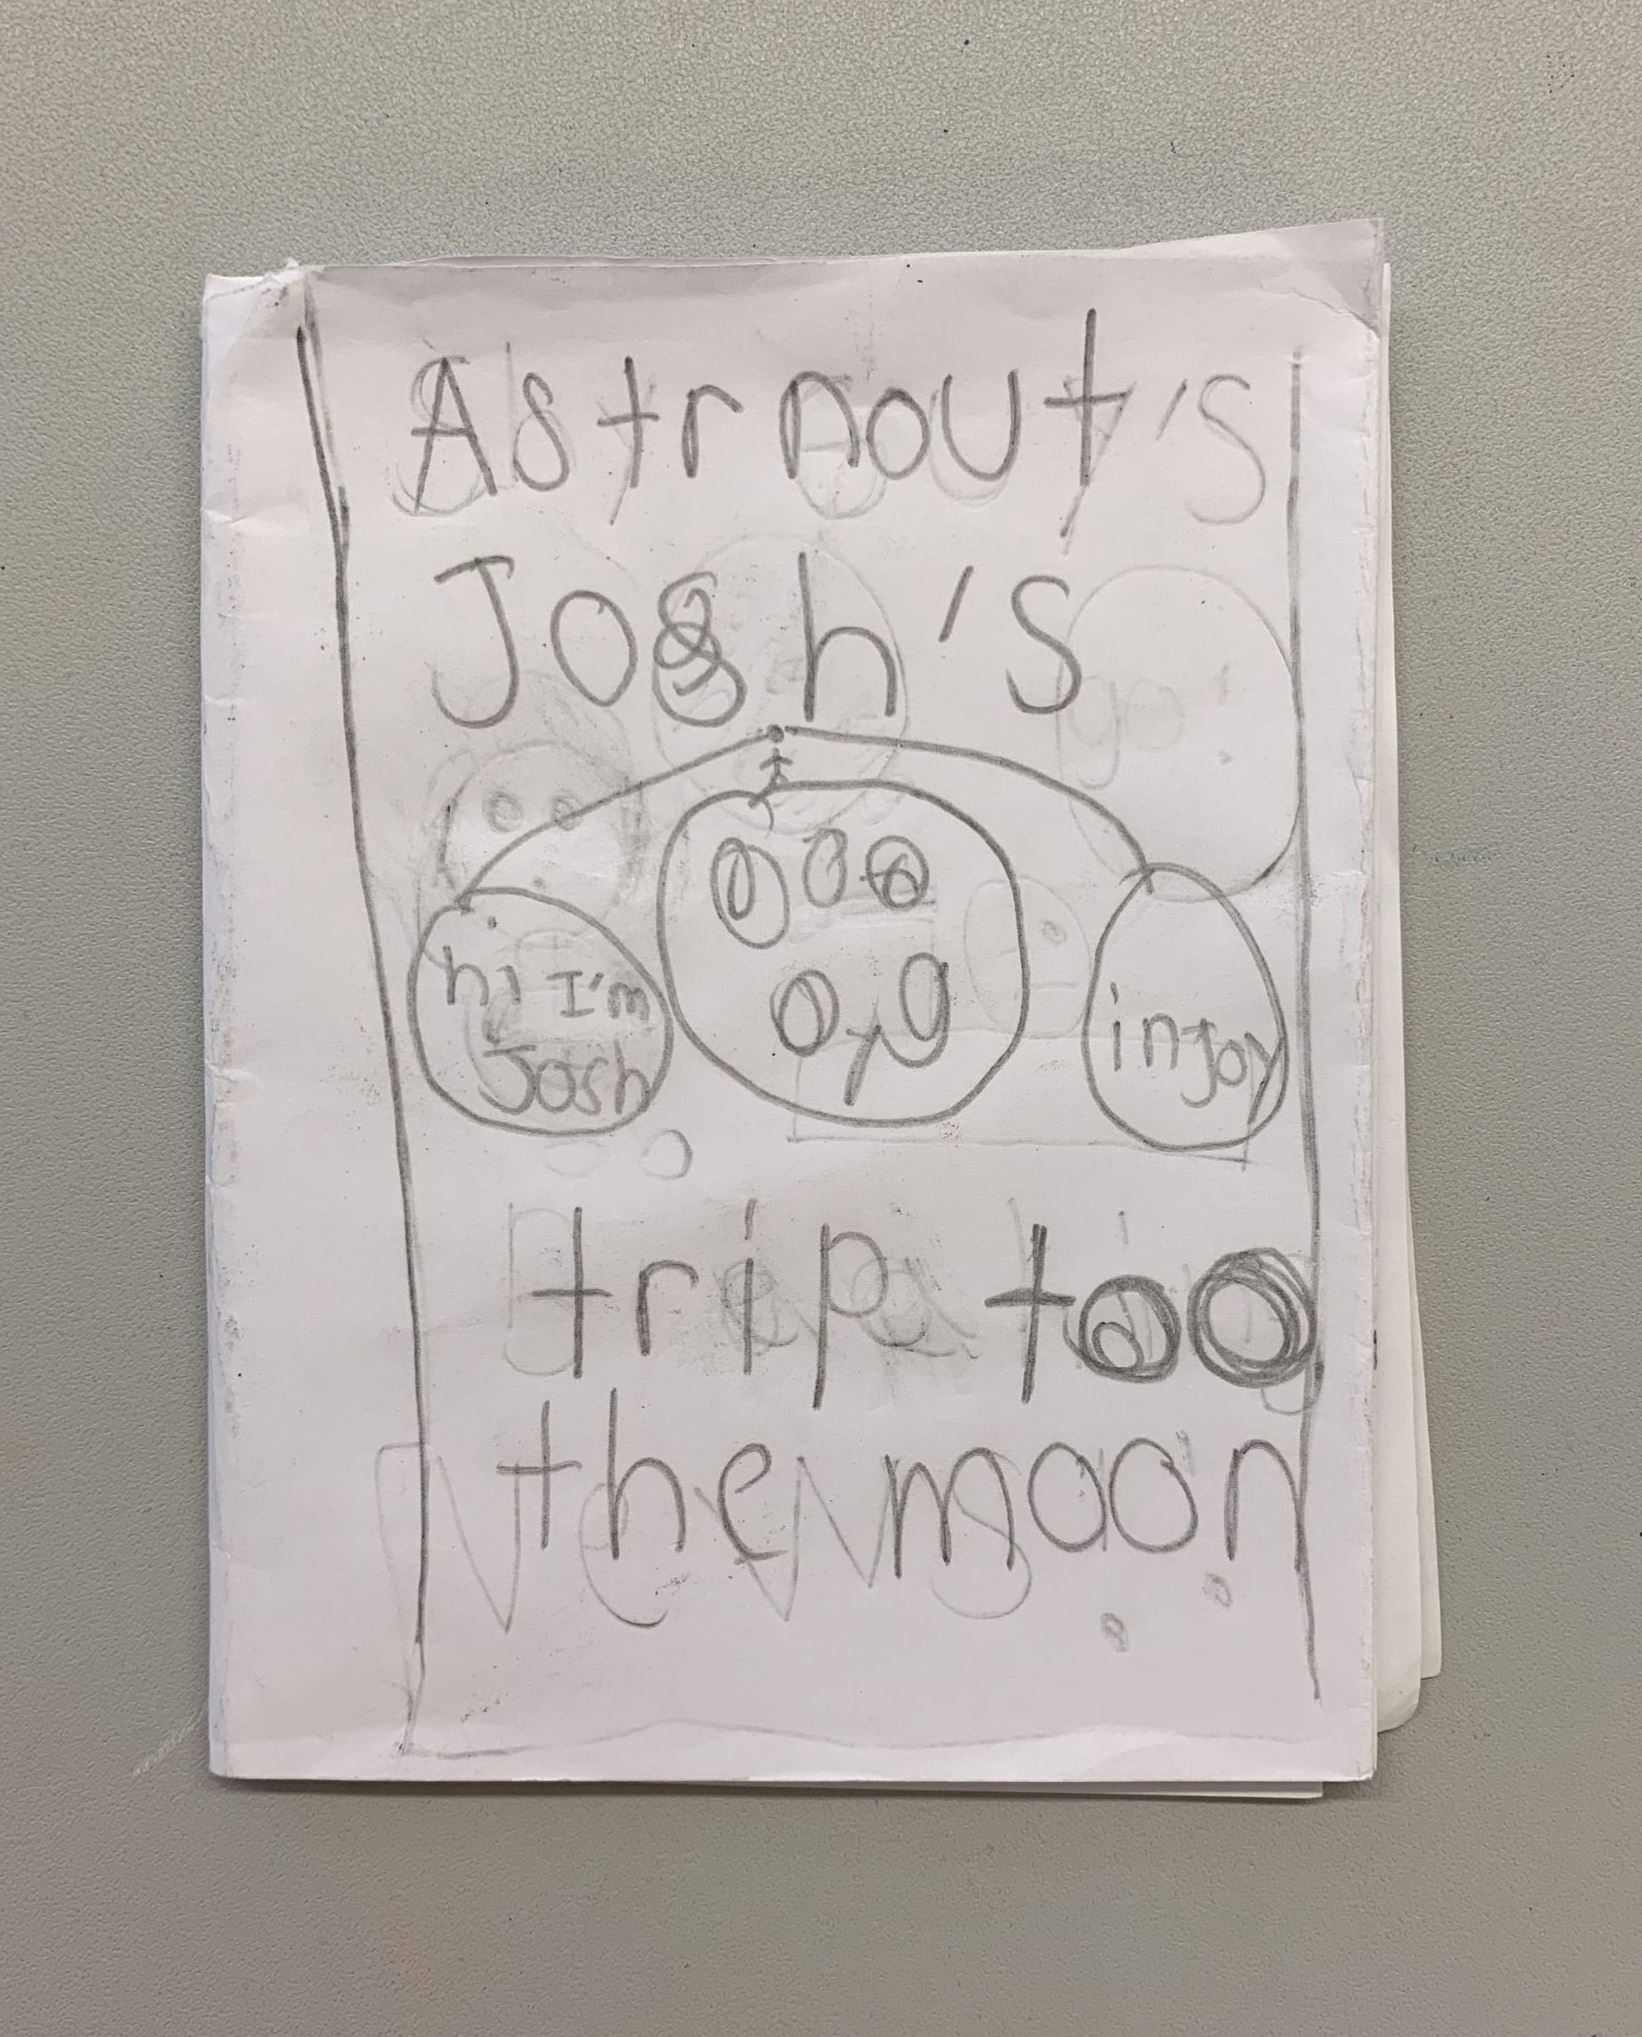 Astrnout's
Josh's
hi I'm
Josh
injoy
trip too
the moon